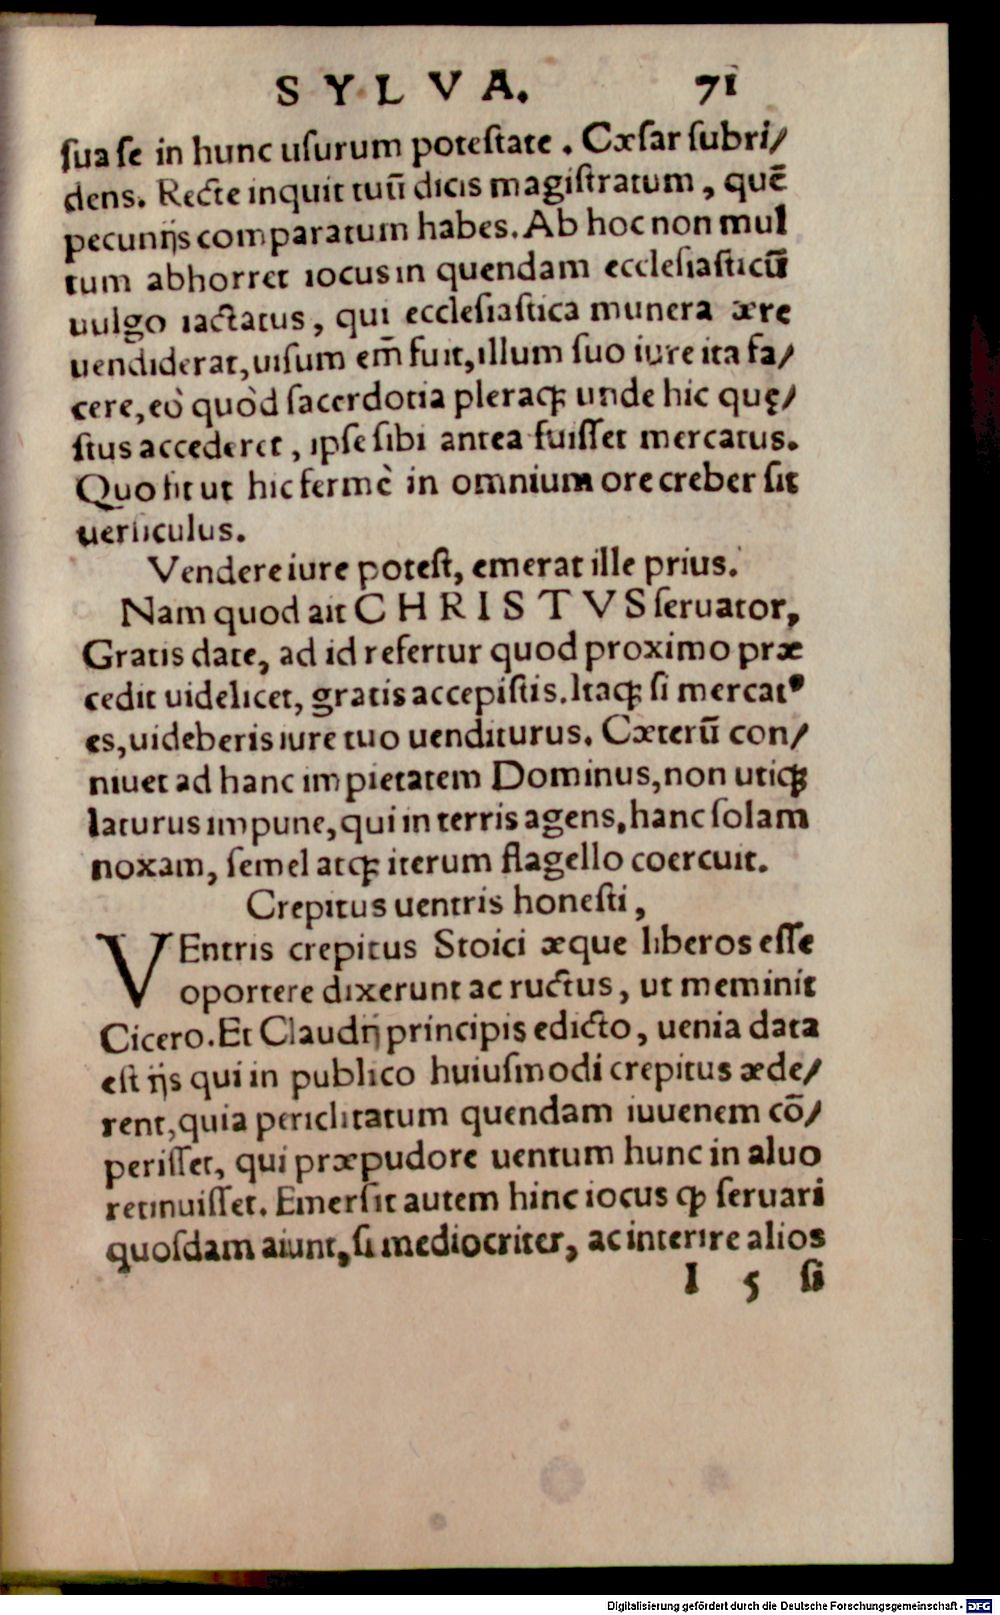 SYLVA. 71
sua se in hunc usurum potestate. Cæsar subri/
dens. Recte inquit tuū dicis magistratum, quē
pecunijs comparatum habes. Ab hoc non mul
tum abhorret iocus in quendam ecclesiasticū
uulgo iactatus, qui ecclesiastica munera ære
uendiderat, uisum em̄ fuit, illum suo iure ita fa/
cere, eò quòd sacerdotia pleraqꝫ unde hic quę/
stus accederet, ipse sibi antea fuisset mercatus.
Quo fit ut hic fermè in omnium ore creber sit
uersiculus.
Vendere iure potest, emerat ille prius.
Nam quod ait CHRISTVS seruator,
Gratis date, ad id refertur quod proximo præ
cedit uidelicet, gratis accepistis. Itaqꝫ si mercatꝰ
es, uideberis iure tuo uenditurus. Cæterū con/
niuet ad hanc impietatem Dominus, non utiqꝫ
laturus impune, qui in terris agens, hanc solam
noxam, semel atqꝫ iterum flagello coercuit.
Crepitus uentris honesti,
VEntris crepitus Stoici æque liberos esse
oportere dixerunt ac ructus, ut meminit
Cicero. Et Claudij principis edicto, uenia data
est ijs qui in publico huiusmodi crepitus æde/
rent, quia periclitatum quendam iuuenem cō/
perisset, qui præpudore uentum hunc in aluo
retinuisset. Emersit autem hinc iocus ꝙ seruari
quosdam aiunt, si mediocriter, ac interire alios
I 5 si
Digitalisierung gefördert durch die Deutsche Forschungsgemeinschaft - DFG